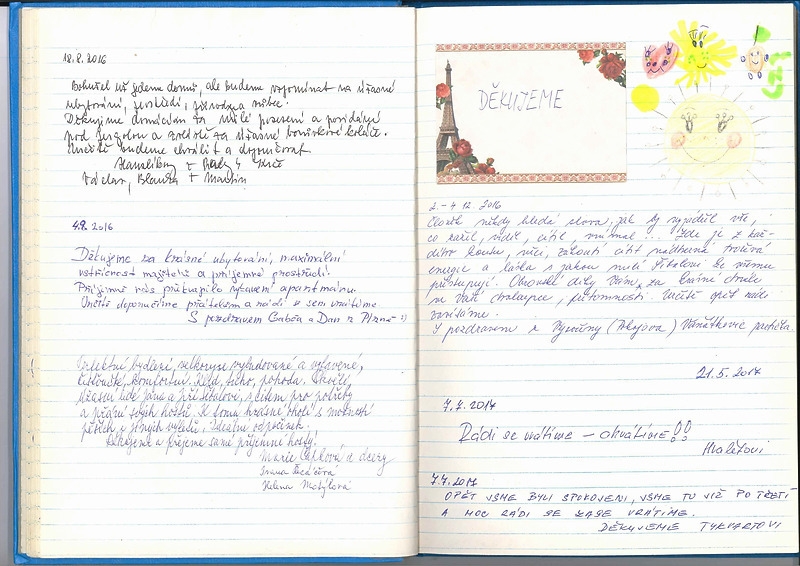 18.8.2016
Bohužel už jedeme domů, ale budeme vzpomínat na úžasné
ubytování, prostředí, přírodu a srdce.
Děkujeme domácím za milé posezení a povídání
pod pergolou a zvláště za úžasné borůvkové koláče.
Určitě budeme chválit a doporučovat
Václav, Blanka + Martin
4.9. 2016
Děkujeme za krásné ubytování, maximální
vstřícnost majitelů a příjemné prostředí.
Příjemně nás překvapilo vybavení apartmánu.
Určitě doporučíme přátelům a rádi se sem vrátíme.
S pozdravem Gabča a Dan z Plzně :)
Perfektní bydlení, velkoryse vybudované a vybavené,
čisťoučké, komfortní. Klid, ticho, pohoda. Skvělí,
úžasní lidé jsou a přátelští, s citem pro potřeby
a přání svých hostů. K tomu krásné okolí s možností
pěších i jiných výletů. Ideální odpočinek.
Děkujeme a přejeme samé příjemné hosty.
Marie a dcery
Ivana
Helena
DĚKUJEME
2.-4.12.2016
Člověk někdy hledá slova, jak by vyjádřil vše,
co zažil, viděl, cítil, vnímal ... Zde je z kaž-
dého koutu, věci, zákoutí cítit nádherná
energie a láska s jakou k všemu
přistupují. Obrovské díky Vám, za krásné chvíle
ve Vaší chaloupce, přítomnosti. Určitě opět rádi
zavítáme.
S pozdravem z Vysočiny
21.5.2017
7.7.2017
Rádi se vrátíme – chvátíme!!
Hvaletovi
7.7.2017
OPĚT JSME BYLI SPOKOJENI, JSME TU JIŽ PO TŘETÍ
A MOC RÁDI SE ZASE VRÁTÍME.
DĚKUJEME TYKVARTOVI